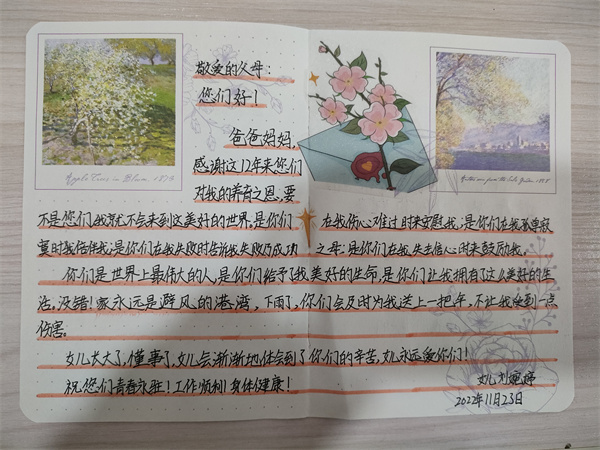 敬爱的父母：
您们好！
爸爸妈妈，
感谢这12年来您们
对我的养育之恩，要
不是您们我就不会来到这美好的世界，是你们在我伤心难过时来安慰我；是你们在我孤单寂
寞时我陪伴我；是你们在我失败时告诉我失败乃成功之母；是你们在我失去信心时来鼓励我。
你们是世界上最伟大的人，是你们给予了我美好的生命，是你们让我拥有了这么美好的生
活。没错！家永远是避风的港湾，下雨了，你们会及时为我送上一把伞，不让我受到一点
伤害。
女儿长大了，懂事了，女儿会渐渐地体会到了你们的辛苦，女儿永远爱你们！
祝您们青春永驻！工作顺利！身体健康！
女儿刘
2022年11月23日
Apple Trees in Bloom, 1873